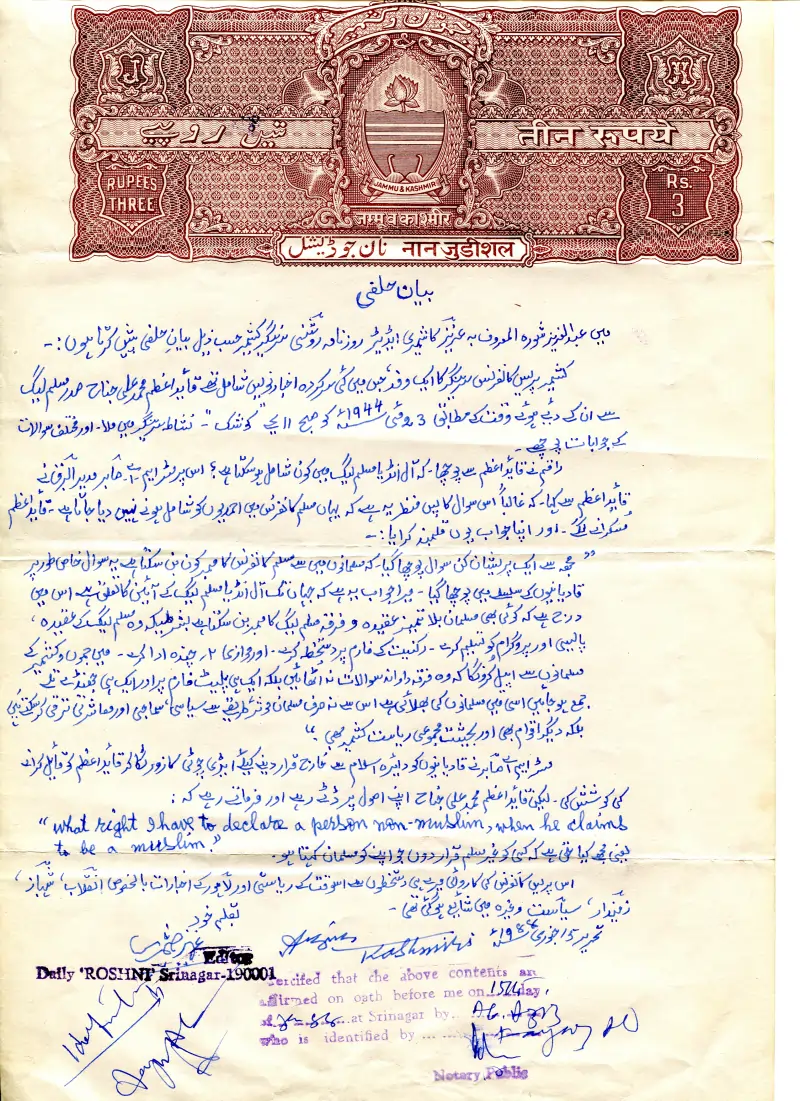 تین روپیے
तीन रूपये
RUPEES THREE
Rs. 3
JAMMU & KASHMIR
जम्मू व काश्मीर
نان جوڈیشل नान जुडीशल
بیان حلفی
میں عبدالعزیز شورہ المعروف بہ عزیز کاشمیری ایڈیٹر روزنامہ روشنی سرینگر کشمیر حسب ذیل بیان حلفی پیش کرتا ہوں:-
کشمیر پریس کانفرنس سرینگر کا ایک وفد، جس میں کئی سرکردہ اخبار نویس شامل تھے قائد اعظم محمد علی جناح صدر مسلم لیگ
سے ان کے دئے ہوئے وقت کے مطابق 3 مئی 1944ء کو صبح 11 بجے "کوشک" نشاط سرینگر میں ملا۔ اور مختلف سوالات
کے جوابات پوچھے۔
راقم نے قائد اعظم سے پوچھا۔ کہ آل انڈیا مسلم لیگ میں کون شامل ہو سکتا ہے؟ اس پر مسٹر ایم۔اے۔ صابر مدیر البرق نے
قائد اعظم سے کہا۔ کہ غالباً اس سوال کا پس منظر یہ ہے کہ یہاں مسلم کانفرنس میں احمدیوں کو شامل ہونے نہیں دیا جاتا ہے۔ قائد اعظم
مسکرانے لگے۔ اور اپنا جواب یوں قلمبند کرایا:-
"مجھ سے ایک پریشان کن سوال پوچھا گیا۔ کہ مسلمانوں میں سے مسلم کانفرنس کا ممبر کون بن سکتا ہے یہ سوال خاص طور پر
قادیانیوں کے سلسلے میں پوچھا گیا۔ میرا جواب یہ ہے کہ جہاں تک آل انڈیا مسلم لیگ کے آئین کا تعلق ہے اس میں
درج ہے کہ کوئی بھی مسلمان بلا تمیز عقیدہ و فرقہ مسلم لیگ کا ممبر بن سکتا ہے بشرطیکہ وہ مسلم لیگ کے عقیدہ،
پالیسی اور پروگرام کو تسلیم کرے۔ رکنیت کے فارم پر دستخط کرے۔ اور موازی ۲؍ چندہ ادا کرے۔ میں جموں و کشمیر کے
مسلمانوں سے اپیل کروں گا کہ وہ فرقہ وارانہ سوالات نہ اٹھائیں بلکہ ایک ہی پلیٹ فارم پر اور ایک ہی جھنڈے تلے
جمع ہو جائیں اسی میں مسلمانوں کی بھلائی ہے اس سے نہ صرف مسلمان موثر طریقے سے سیاسی، سماجی اور معاشرتی ترقی کر سکتے ہیں
بلکہ دیگر اقوام بھی اور بحیثیت مجموعی ریاست کشمیر بھی۔"
مسٹر ایم اے صابر نے قادیانیوں کو دائرہ اسلام سے خارج قرار دینے کیلئے ایڑی چوٹی کا زور لگا کر قائد اعظم کو قائل کرانے
کی کوشش کی۔ لیکن قائد اعظم محمد علی جناح اپنے اصول پر ڈٹے رہے اور فرماتے رہے کہ:
"What right I have to declare a person non-muslim, when he claims
to be a muslim."
یعنی مجھے کیا حق ہے کہ کسی کو غیر مسلم قرار دوں جو اپنے کو مسلمان کہتا ہو۔
اس پریس کانفرنس کی کاروائی میرے ہی دستخطوں سے اسوقت کے ریاستی اور لاہور کے اخبارات بالخصوص انقلاب، شہباز،
زمیندار، سیاست وغیرہ میں شائع ہو گئی تھی۔
تحریر 15 جنوری 1988ء
بقلم خود
Aziz Kashmiri
Editor
Daily 'ROSHNI' Srinagar-190001
Cercifed that the above contents an
affirmed on oath before me on 15th day
of ... at Srinagar by
who is identified by
Notary Public